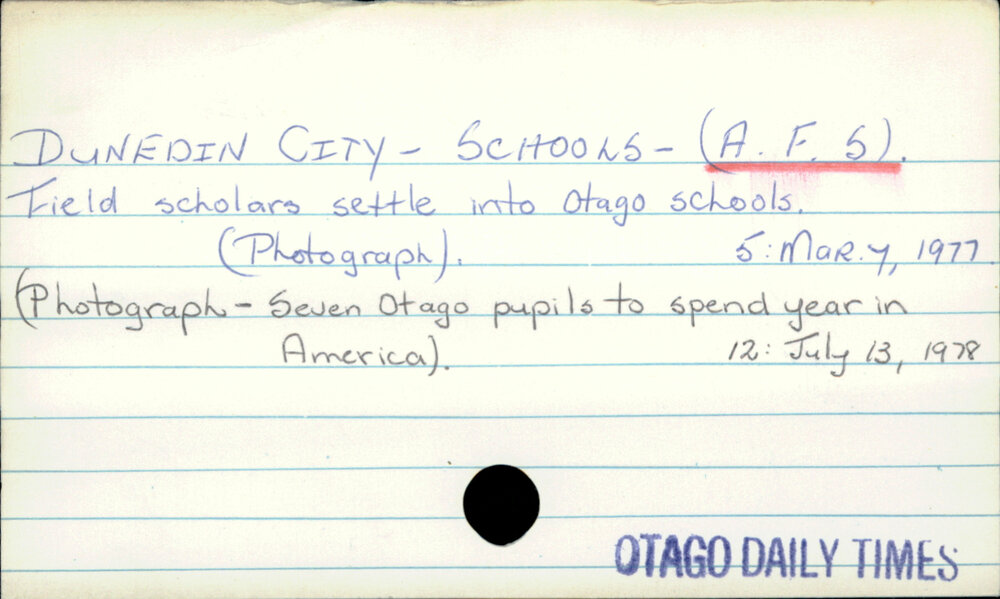 DUNEDIN CITY - SCHOOLS - (A. F. S).
Field scholars settle into Otago schools.
(Photograph). 5: Mar. 7, 1977.
(Photograph - Seven Otago pupils to spend year in
America). 12: July 13, 1978
OTAGO DAILY TIMES